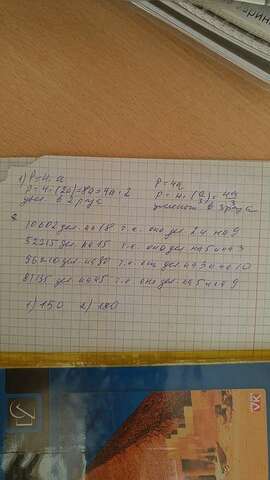 1) P=4·a P=4a
P=4·(2a)=8a=4a·2 P=4·(a/3)=4a/3
увел. в 2 раза уменьш. в 3 раза
10602 дел. на 18 т.к. оно дел. 2 и на 9
52215 дел. на 15 т.к. оно дел. на 5 и на 3
на 30 т.к. оно дел. на 3 и на 10
на 45 т.к. оно дел. на 5 и на 9
1) 150 2)
VK